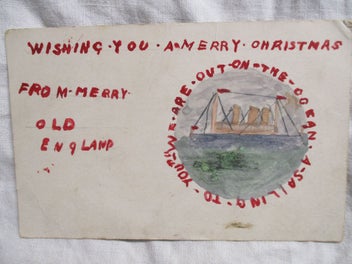 WISHING·YOU·A·MERRY·CHRISTMAS
FROM·MERRY·
OLD
ENGLAND
WE·ARE·OUT·ON·THE·OCEAN·A·SAILING·TO·YOU·